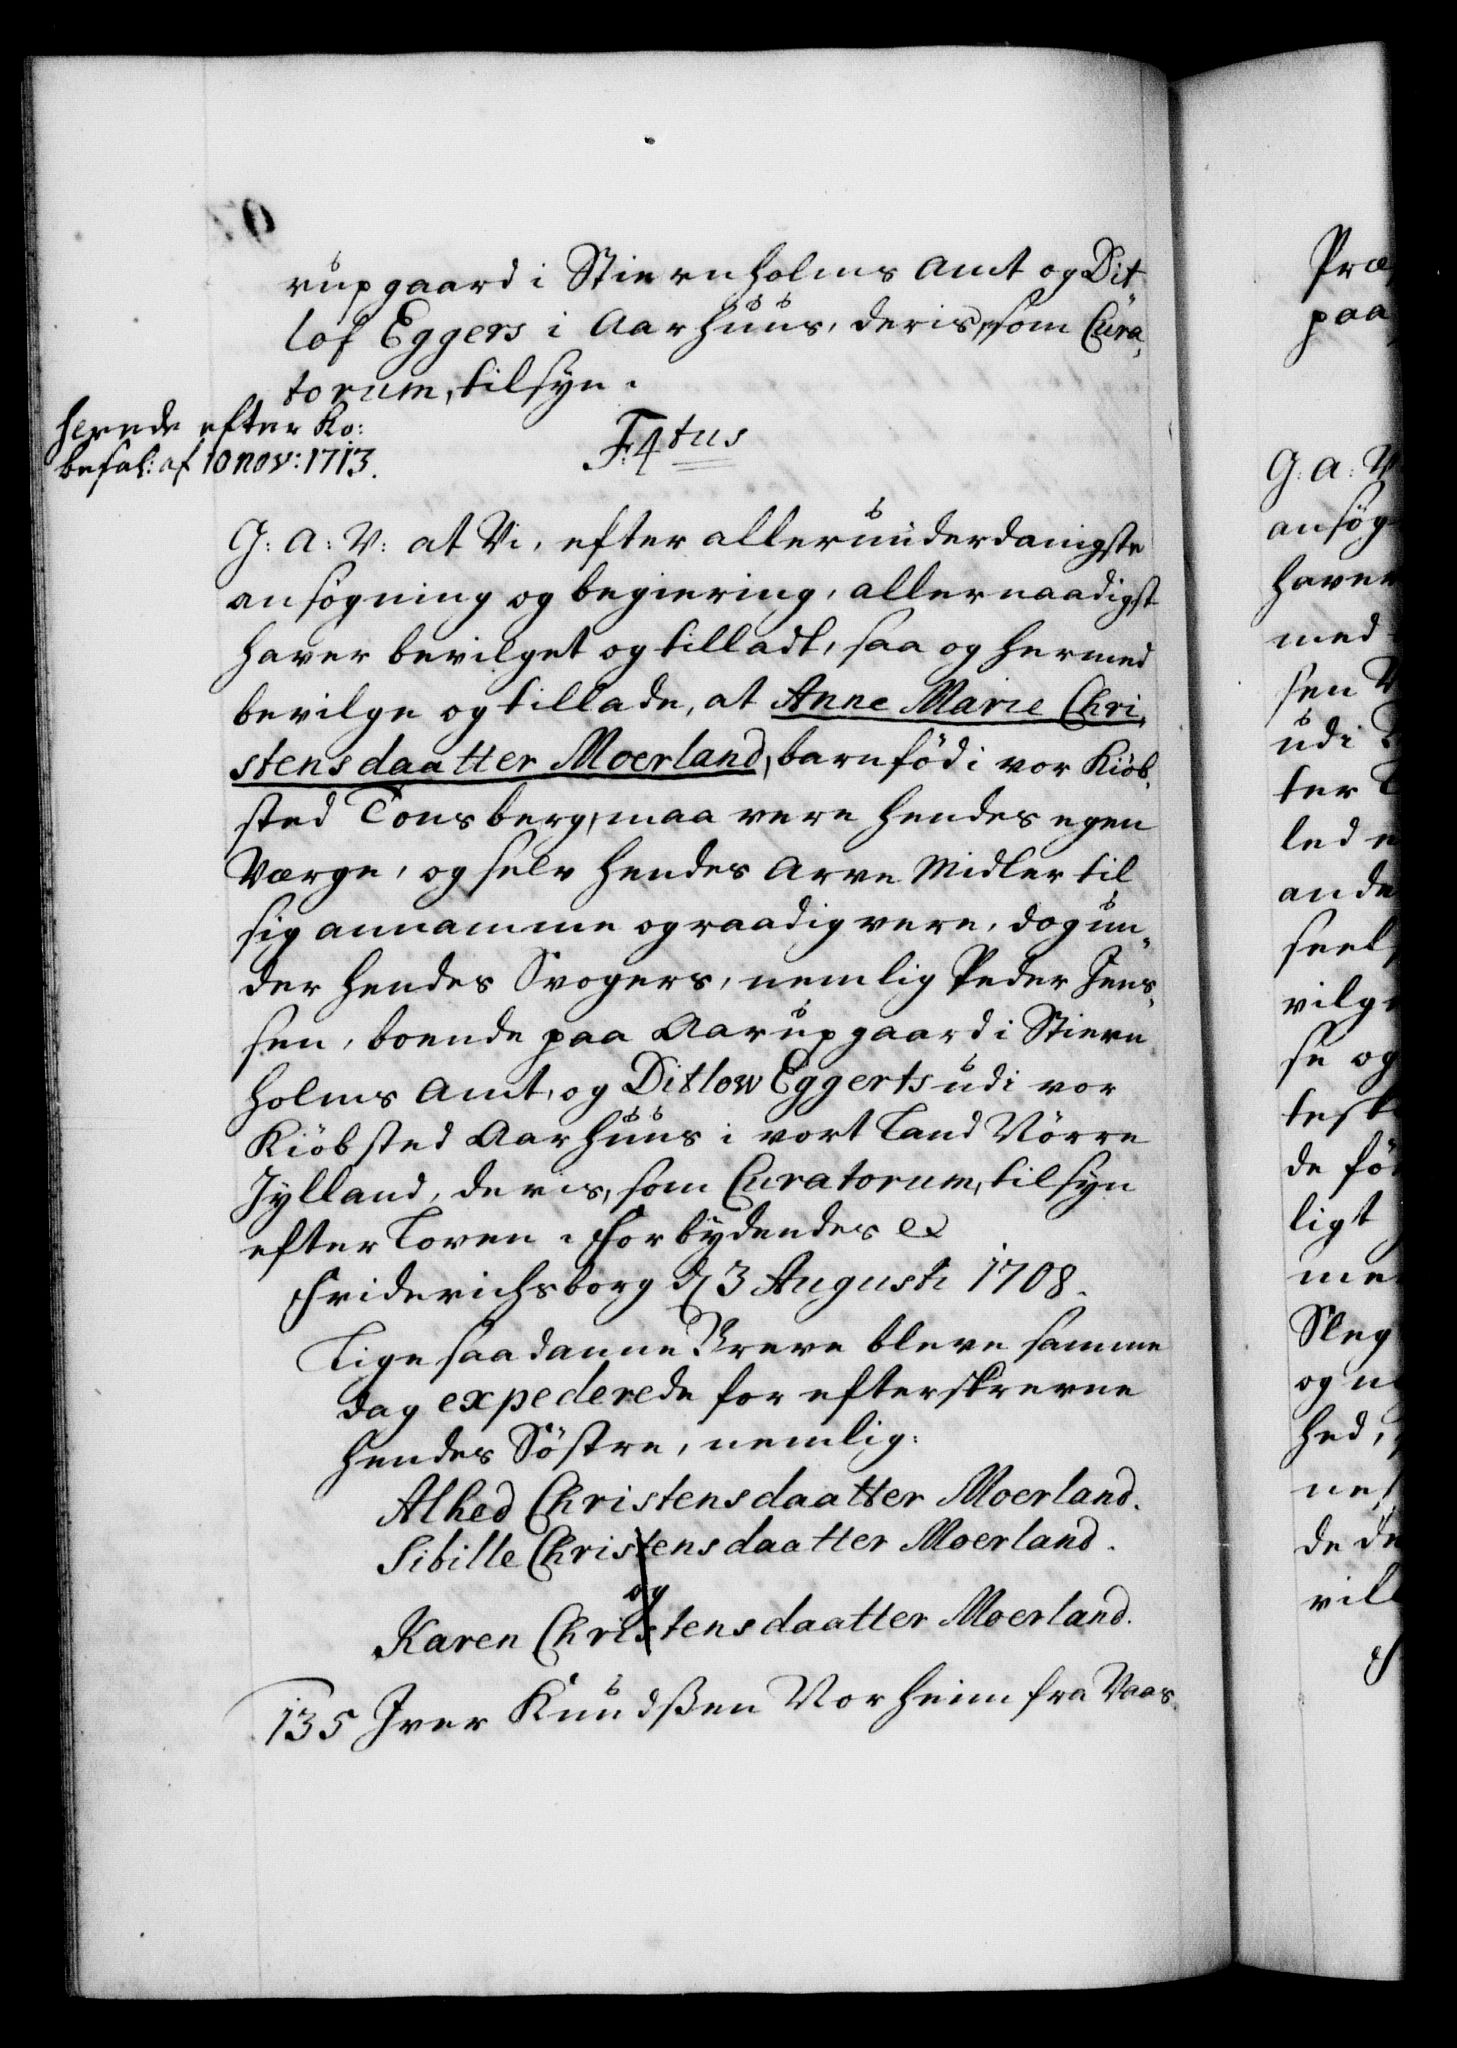 rupgaard i Stiernholms Amt og Dit
lof Eggers i Aarhuus, deris, som Cura,
torum, tilsyn.
herede efter Ko:
befal: af 10 nov: 1713.
F: 4tus
G: A: V: at Vi, efter allerunderdanigste
ansøgning og begiering, allernaadigst
haver bevilget og tilladt, saa og hermed
bevilge og tillade, at Anne Marie Chri,
stensdaatter Moerland, barnföd i vor Kiöb,
sted Tonsberg, maa vere hendes egen
Værge, og selv hendes Arve Midler til
sig annamme og raadig vere, dog un,
der hendes Svogers, nemlig Peder Jens,
sen, boende paa Aarupgaard i Stiern
holms Amt, og Ditlow Eggerts udi vor
Kiöbsted Aarhuus i vort Land Nörre
Jylland, deris, som Curatorum, tilsyn
efter Loven. Forbydendes etc
Friderichsborg d 3 Augusti 1708.
Lige saadanne Breve bleve samme
dag expederede for efterskrevne
hendes Söstre, nemlig:
Alhed Christensdaatter Moerland.
Sibille Christensdaatter Moerland.
og
Karen Christensdaatter Moerland.
135 Iver Knudßen Vorheim fra Vaas,
Præ
paa
G: A: V
ansøg
haver
med
sen
udi
ter
led
ande
seel
vilg
se og
test
de för
ligt
me
Sleg
og
hed,
de
vil